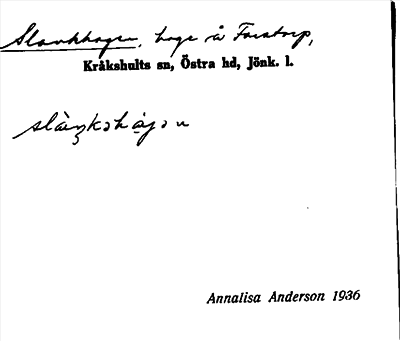 Slankhagen, hage å Farstorp,
Kråkshults sn, Östra hd, Jönk. l.
Annalisa Anderson 1936